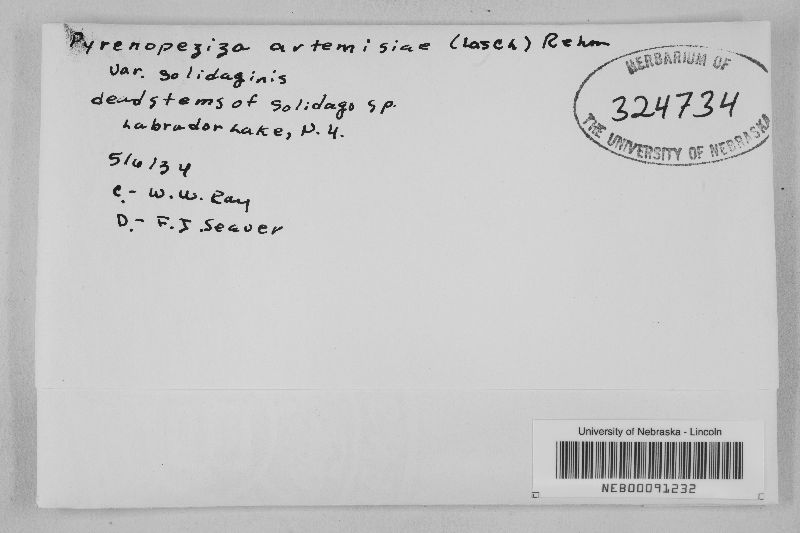 Pyrenopeziza artemisiae (Lasch) Rehm
var. solidaginis
dead stems of Solidago sp.
Labrador Lake, N. Y.
5/6/34
C.- W. W. Ray
D.- F. J. Seaver
HERBARIUM OF
324734
THE UNIVERSITY OF NEBRASKA
University of Nebraska - Lincoln
NEB00091232